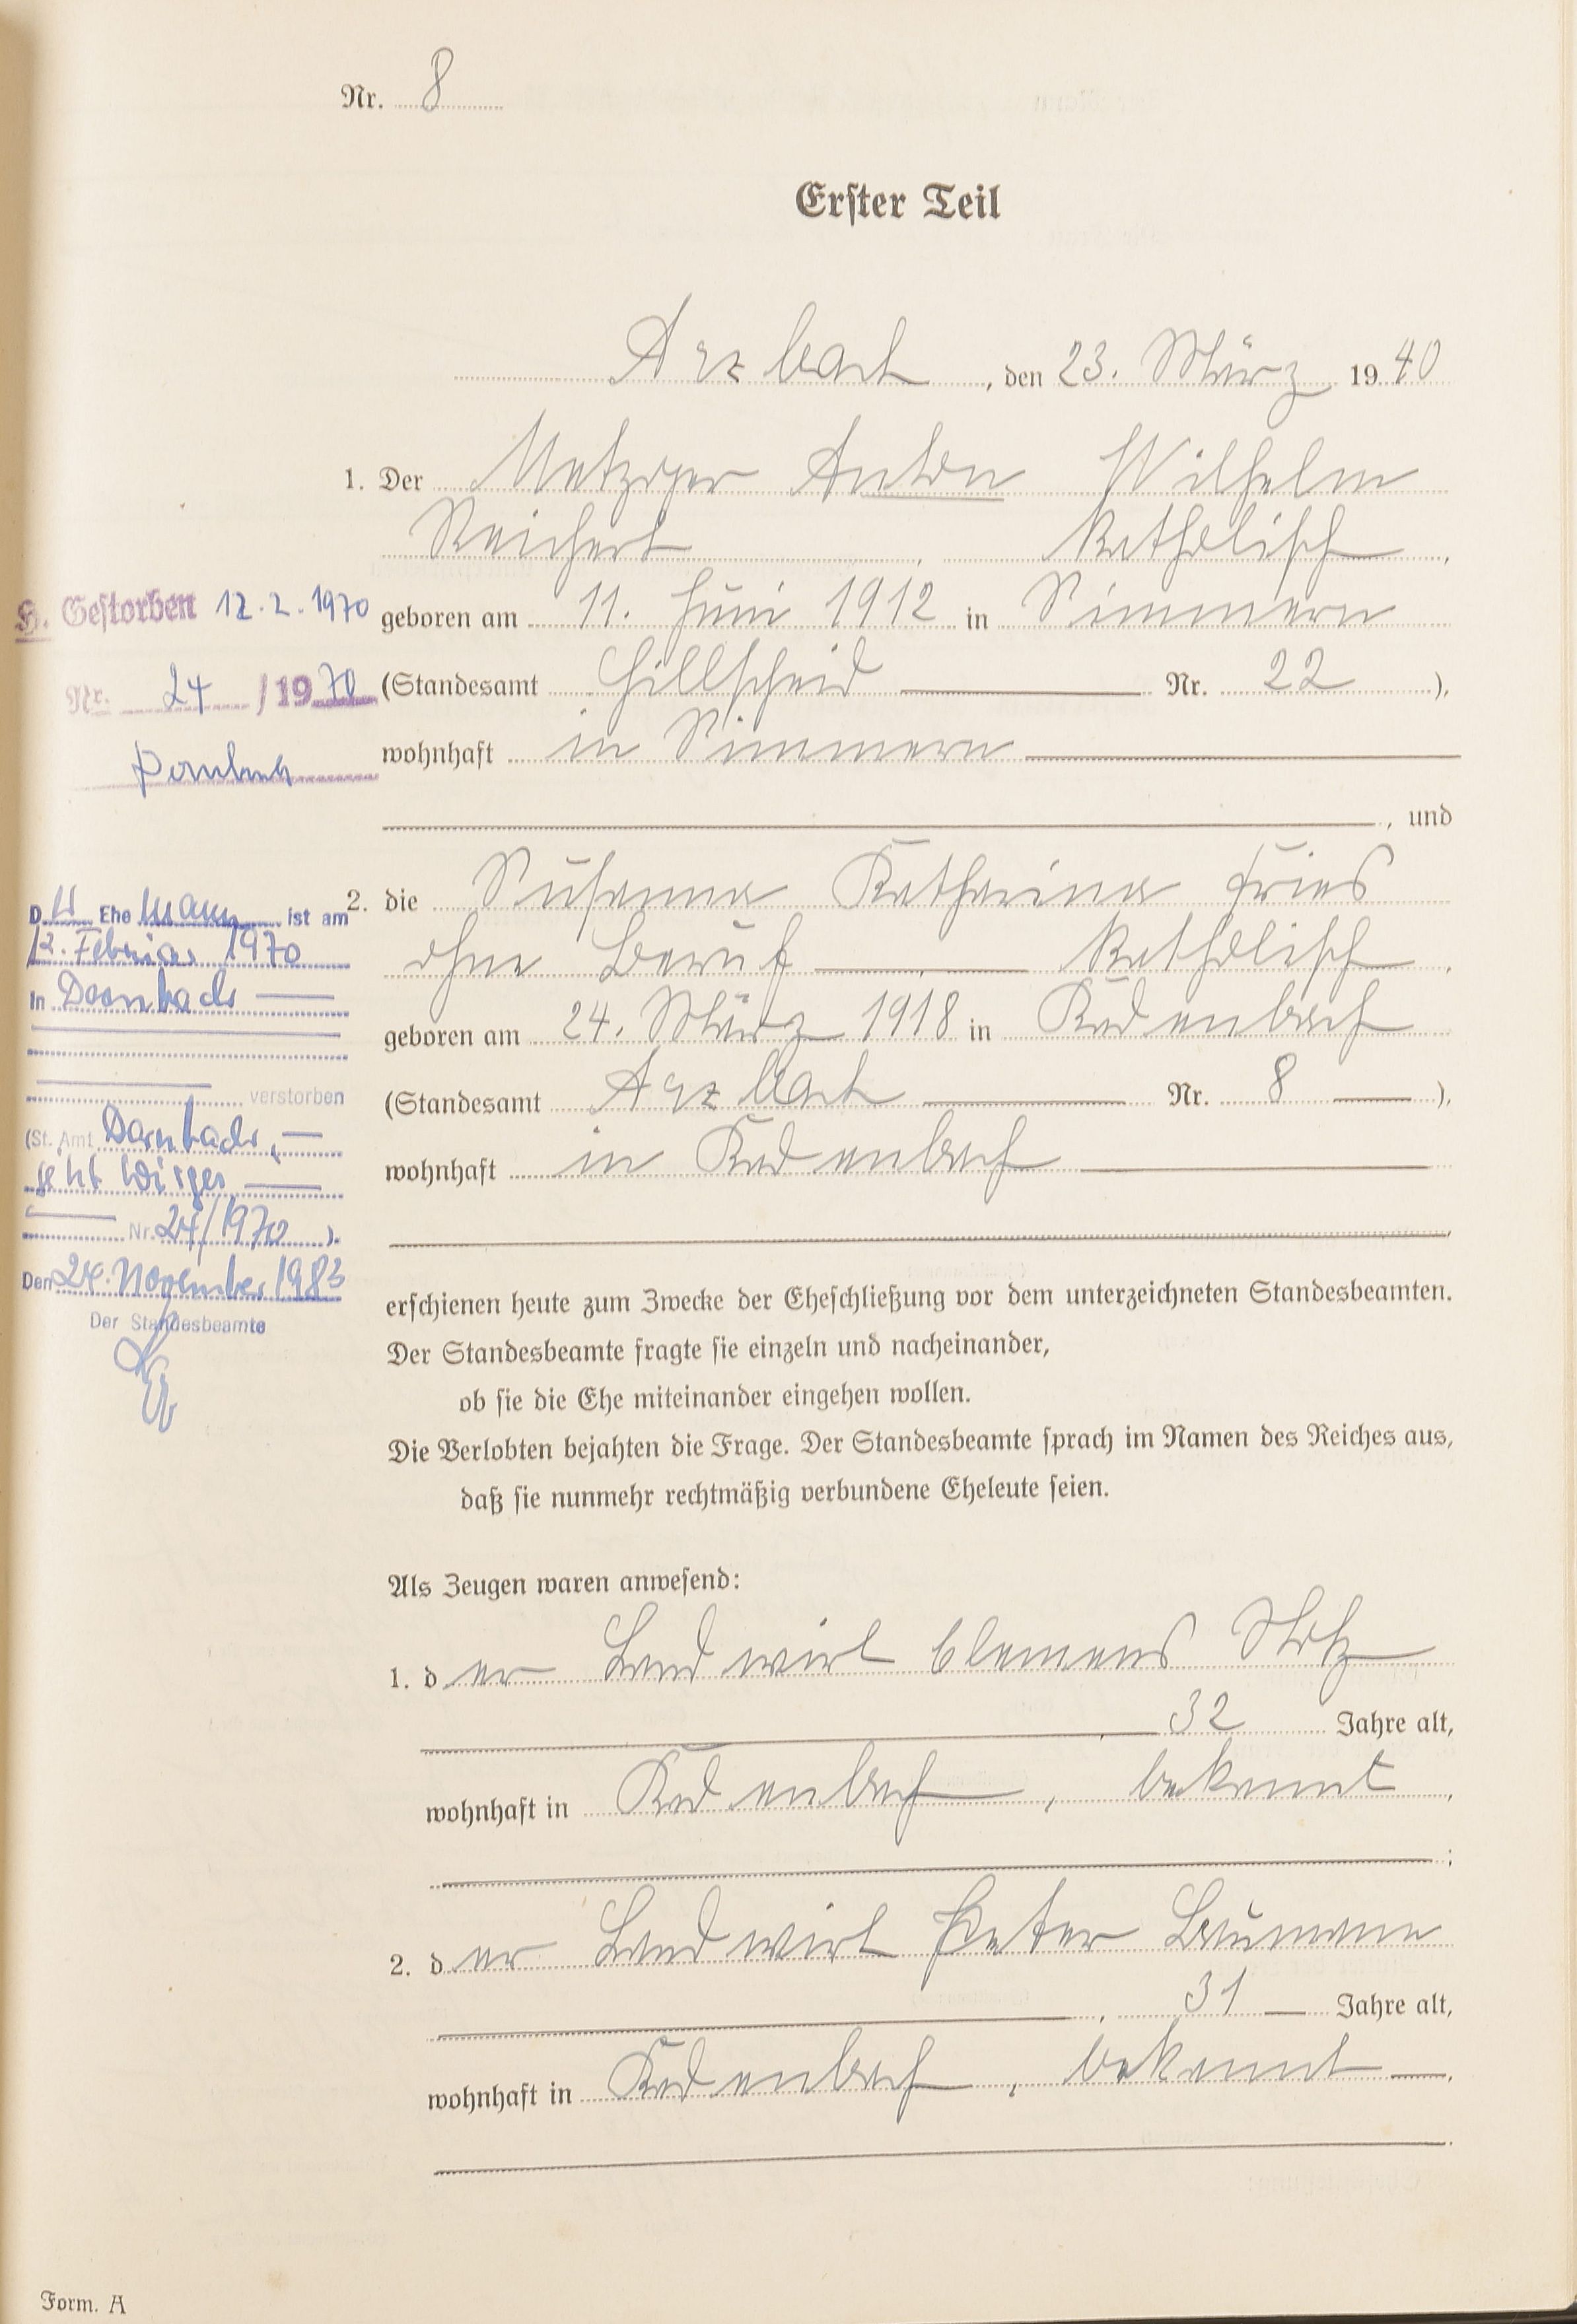 Nr. 8
Erster Teil
Arzbach, den 23. März 1940
1. Der Metzger Anton Wilhelm
Reichert, katholisch,
geboren am 11. Juni 1912 in Simmern
(Standesamt Hillscheid Nr. 22),
wohnhaft in Simmern
, und
2. die Susanna Katharina Fries
ohne Beruf, katholisch,
geboren am 24. März 1918 in Kadenbach
(Standesamt Arzbach Nr. 8),
wohnhaft in Kadenbach
erschienen heute zum Zwecke der Eheschließung vor dem unterzeichneten Standesbeamten.
Der Standesbeamte fragte sie einzeln und nacheinander,
ob sie die Ehe miteinander eingehen wollen.
Die Verlobten bejahten die Frage. Der Standesbeamte sprach im Namen des Reiches aus,
daß sie nunmehr rechtmäßig verbundene Eheleute seien.
Als Zeugen waren anwesend:
1. der Landwirt Clemens Stotz
, 32 Jahre alt,
wohnhaft in Kadenbach, bekannt,
;
2. der Landwirt Peter Baumann
, 31 Jahre alt,
wohnhaft in Kadenbach, bekannt,
.
H. Gestorben 12.2.1970
Nr. 24/1970
Dernbach
D. Ehemann ist am
12. Februar 1970
in Dernbach
verstorben
(St. Amt Dernbach,
jetzt Wirges
Nr. 24/1970).
Den 24. November 1983
Der Standesbeamte
Form. A